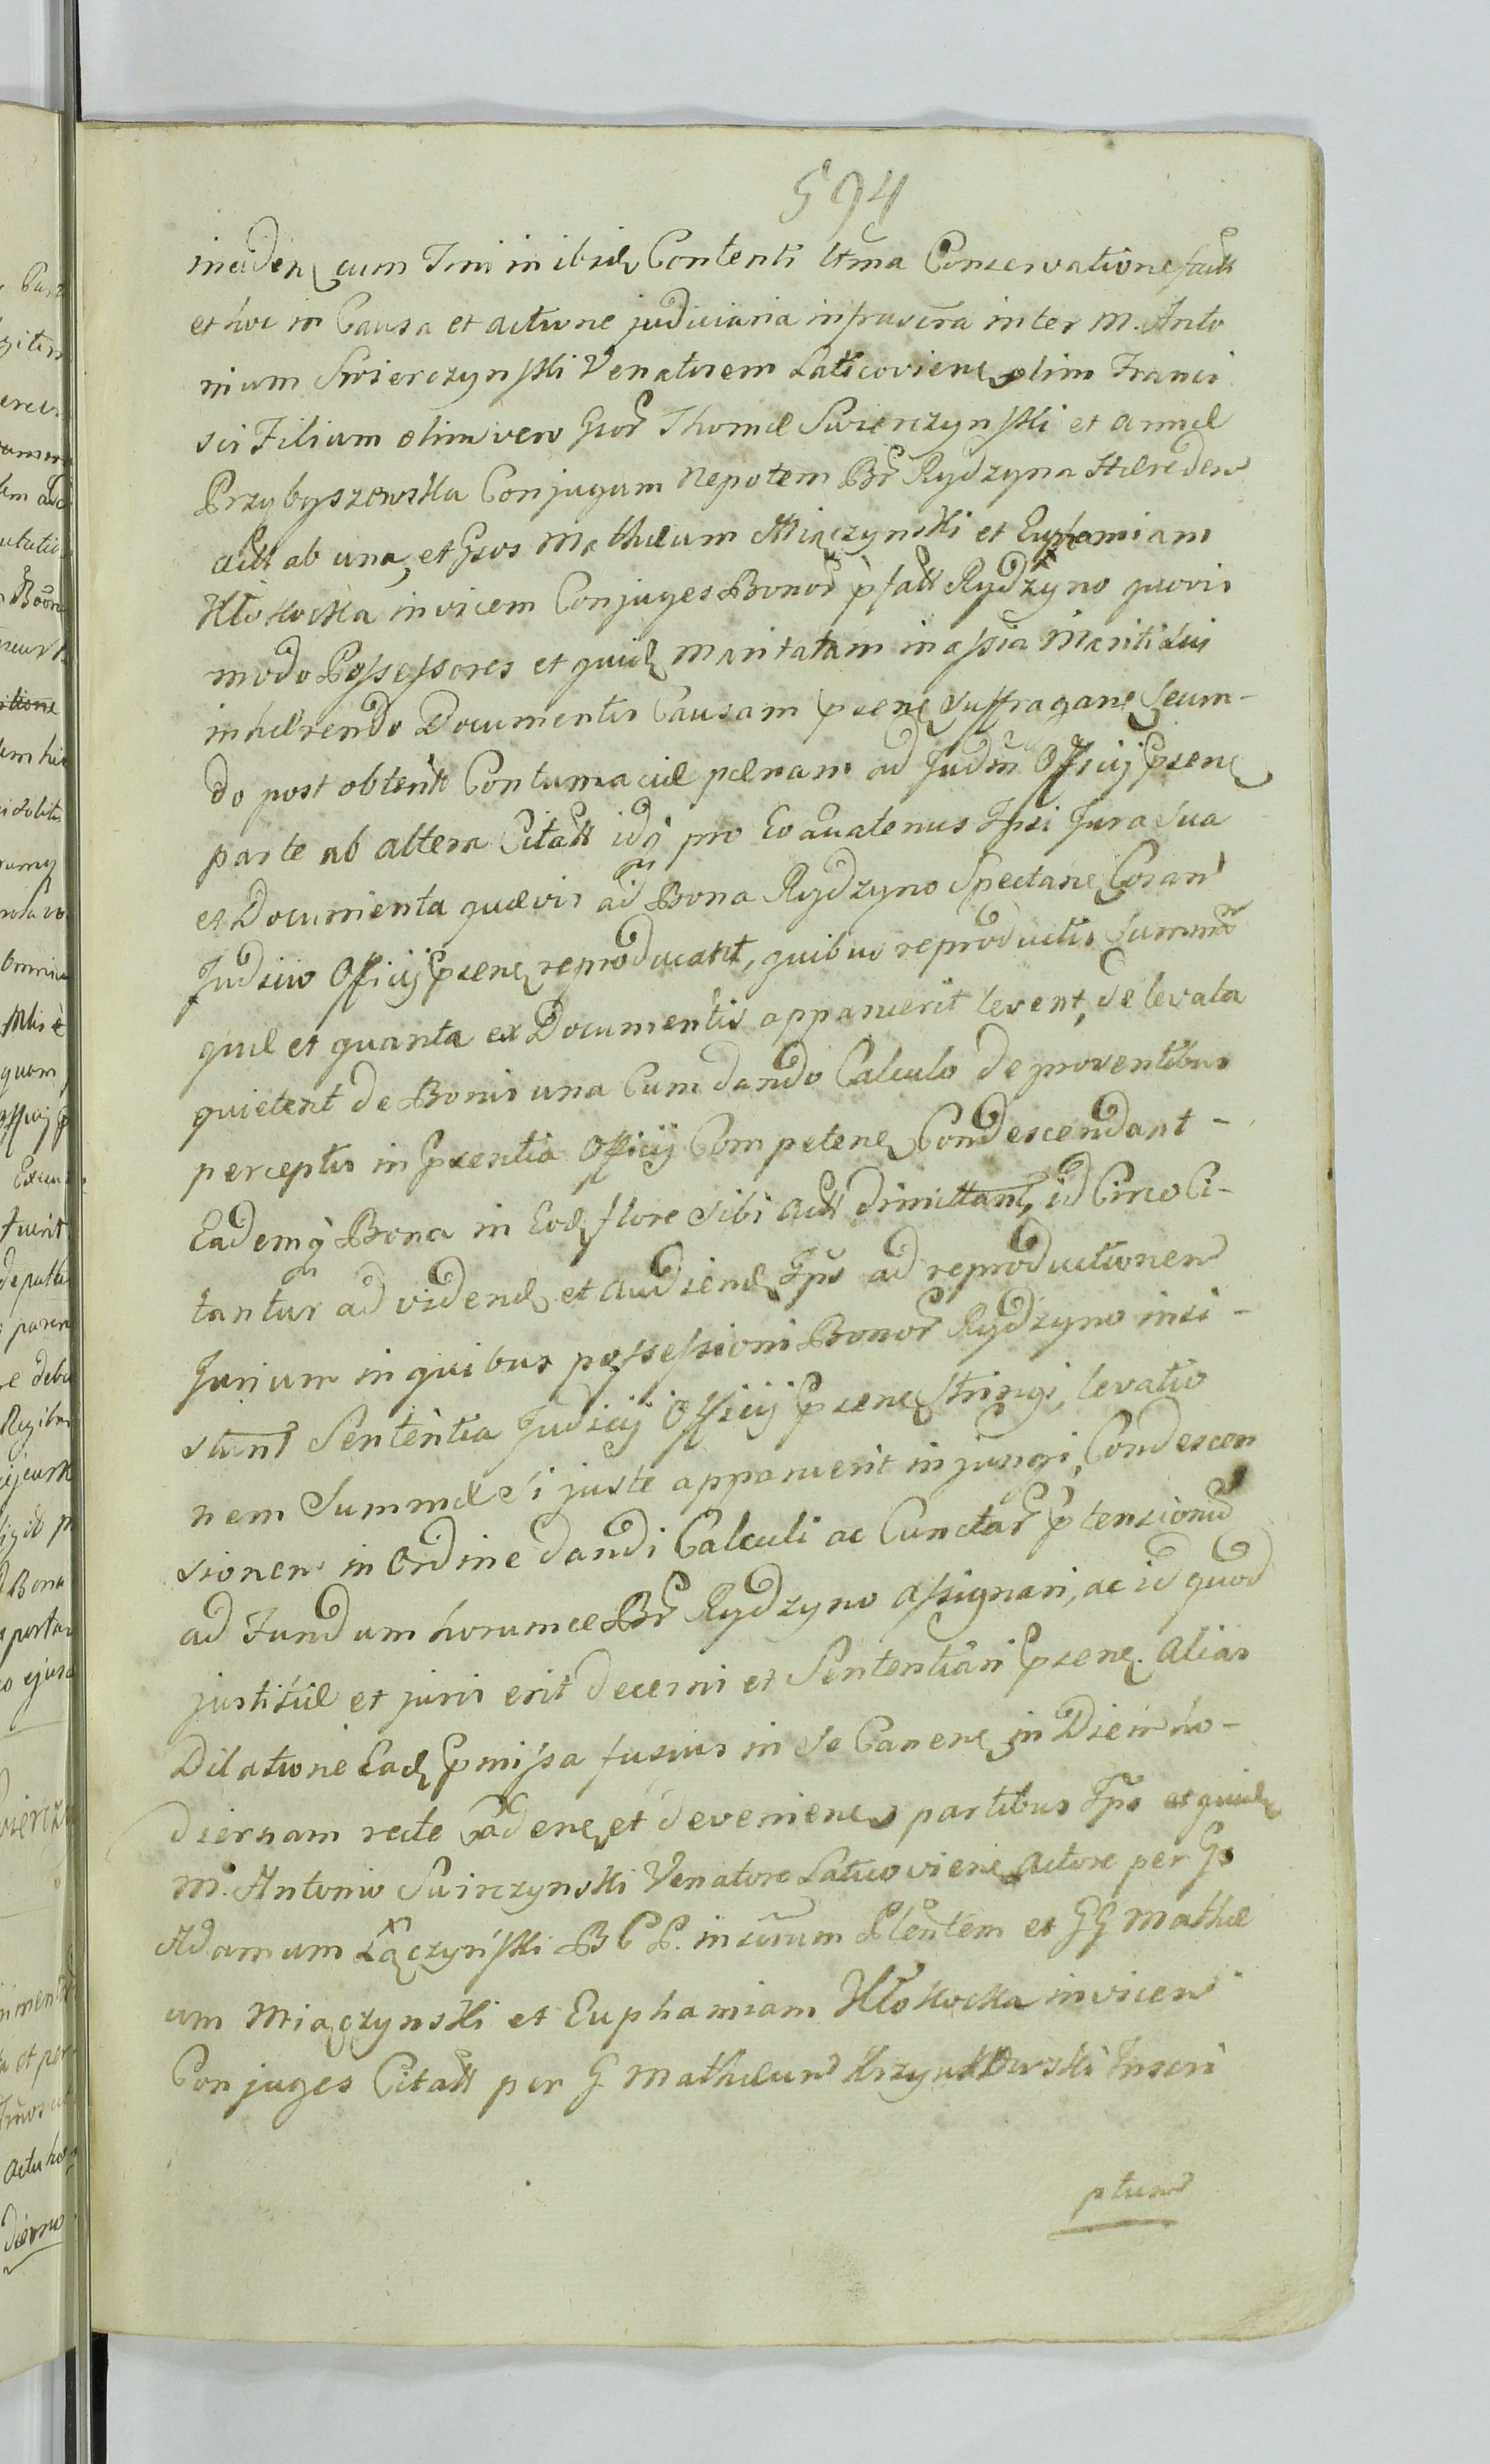 594
inciden cum Tmi in ibide Contenti ltma Conservatione factt
et hoc in Causa et actione judiciaria infrascra inter M. Anto
nium Swierczynski Venatorem Laticoviens olim Franci
sci Filium olim vero Gsor Thomæ Swierczynski et Annæ
Przybyszewska Conjugum Nepotem Br Rydzyna Hæredem
Actt ab una, et Gsos Mathæum Miączynski et Euphamiam
Kłokocka invicem Conjuges Bonor pfatt Rydzyno quovis
modo Possessores et quid maritatam in assia Mariti sui
inhærendo Documentis Causam psene suffragane secun-
do post obtent Contumaciæ pænam ad Judm Officij psene
parte ab altera Citatt idq pro Eo quatenus Ipsi Jura sua
et Documenta quævis ad Bona Rydzyno Spectane Coram
Judicio Officij psene reproducant, quibus reproductis summa
quæ et quanta ex Documentis apparuerit levent, de levata
quietent de Bonis una Cum dando Calculo de proventibus
perceptis in psentia Officij Competene Condescendant -
Eademq Bona in Eod flore sibi Actt dimittant, id Circo Ci-
tantur ad vidend et audiend Ips ad reproductionem
Jurium in quibus possessioni Bonor Rydzyno insi-
stunt Sententia Judicij Officij psene stringi, levatio
nem Summæ si juste apparuerit injungi, Condescen
sionem in Ordine dandi Calculi ac Cunctar ptensionu
ad Fundum horumce Br Rydzyno assignari, ac id quod
justitiæ et juris erit decerni et Sententiari psene. Alias
Dilatione Ead pmissa fusius in se Canene in Diem ho-
diernam recte Cadene et deveniene partibus Ips et quid
M. Antonio Swirczynski Venatore Laticoviene Actore per Gs
Adamum Łączyński B C P. in suum Plentem et GG Mathæ
um Miączynski et Euphamiam Kłokocka invicem
Conjuges Citatt per G Mathæum Krzynkowski Inscri
ptum